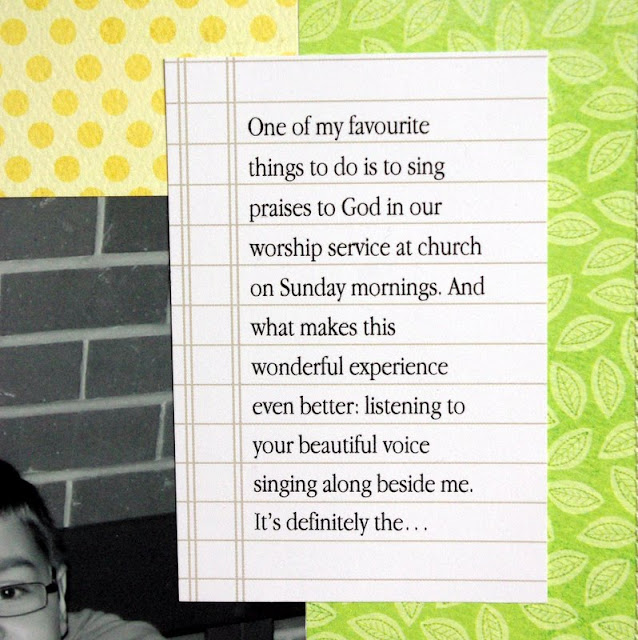 One of my favourite
things to do is to sing
praises to God in our
worship service at church
on Sunday mornings. And
what makes this
wonderful experience
even better: listening to
your beautiful voice
singing along beside me.
It's definitely the...